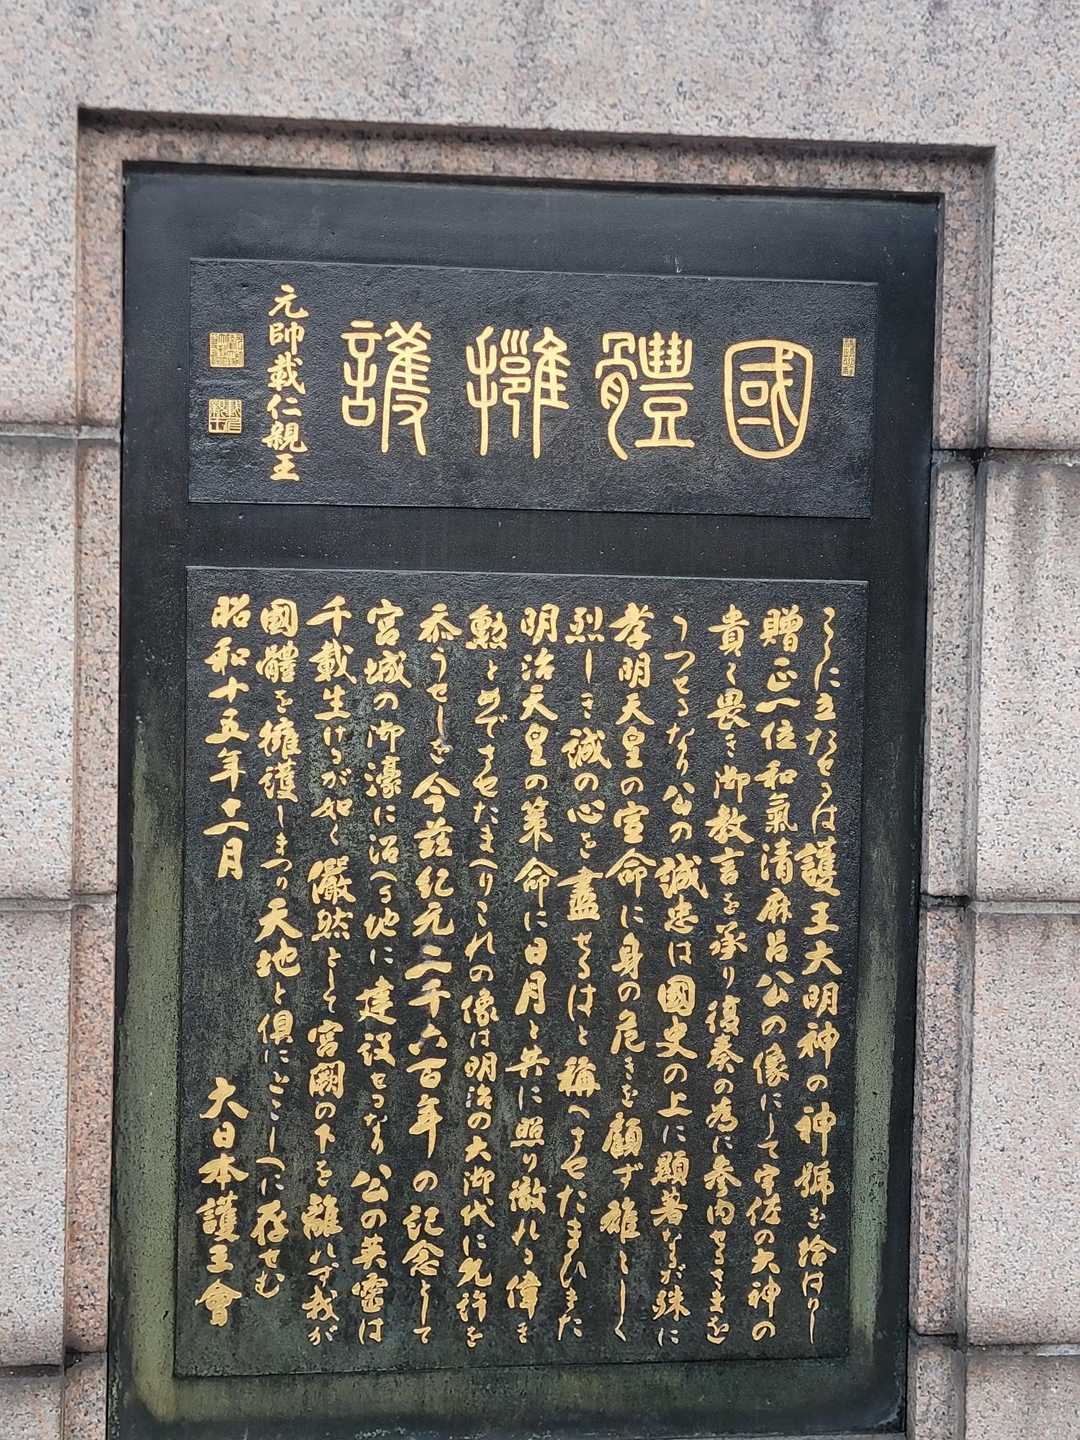 國體擁護
元帥載仁親王
こゝに立たせるは護王大明神の神號を給はりし
贈正一位和氣清麻呂公の像にして宇佐の大神の
貴く畏き御教言を承り復奏の為に参内せるさまを
うつせるなり公の誠忠は國史の上に顯著なるが殊に
孝明天皇の宣命に身の危きを顧ず雄々しく
烈しき誠の心を盡せるはと稱へさせたまひまた
明治天皇の策命に日月と共に照り徹れる偉き
勲とめでさせたまへりこれの像は明治の大御代に允許を
忝うせしを今茲紀元二千六百年の記念として
宮城の御濠に沿へる地に建設せるなり公の英靈は
千載生けるが如く儼然として宮闕の下を離れず我が
國體を擁護しまつり天地と倶にとこしへに存せむ
昭和十五年十二月
大日本護王會